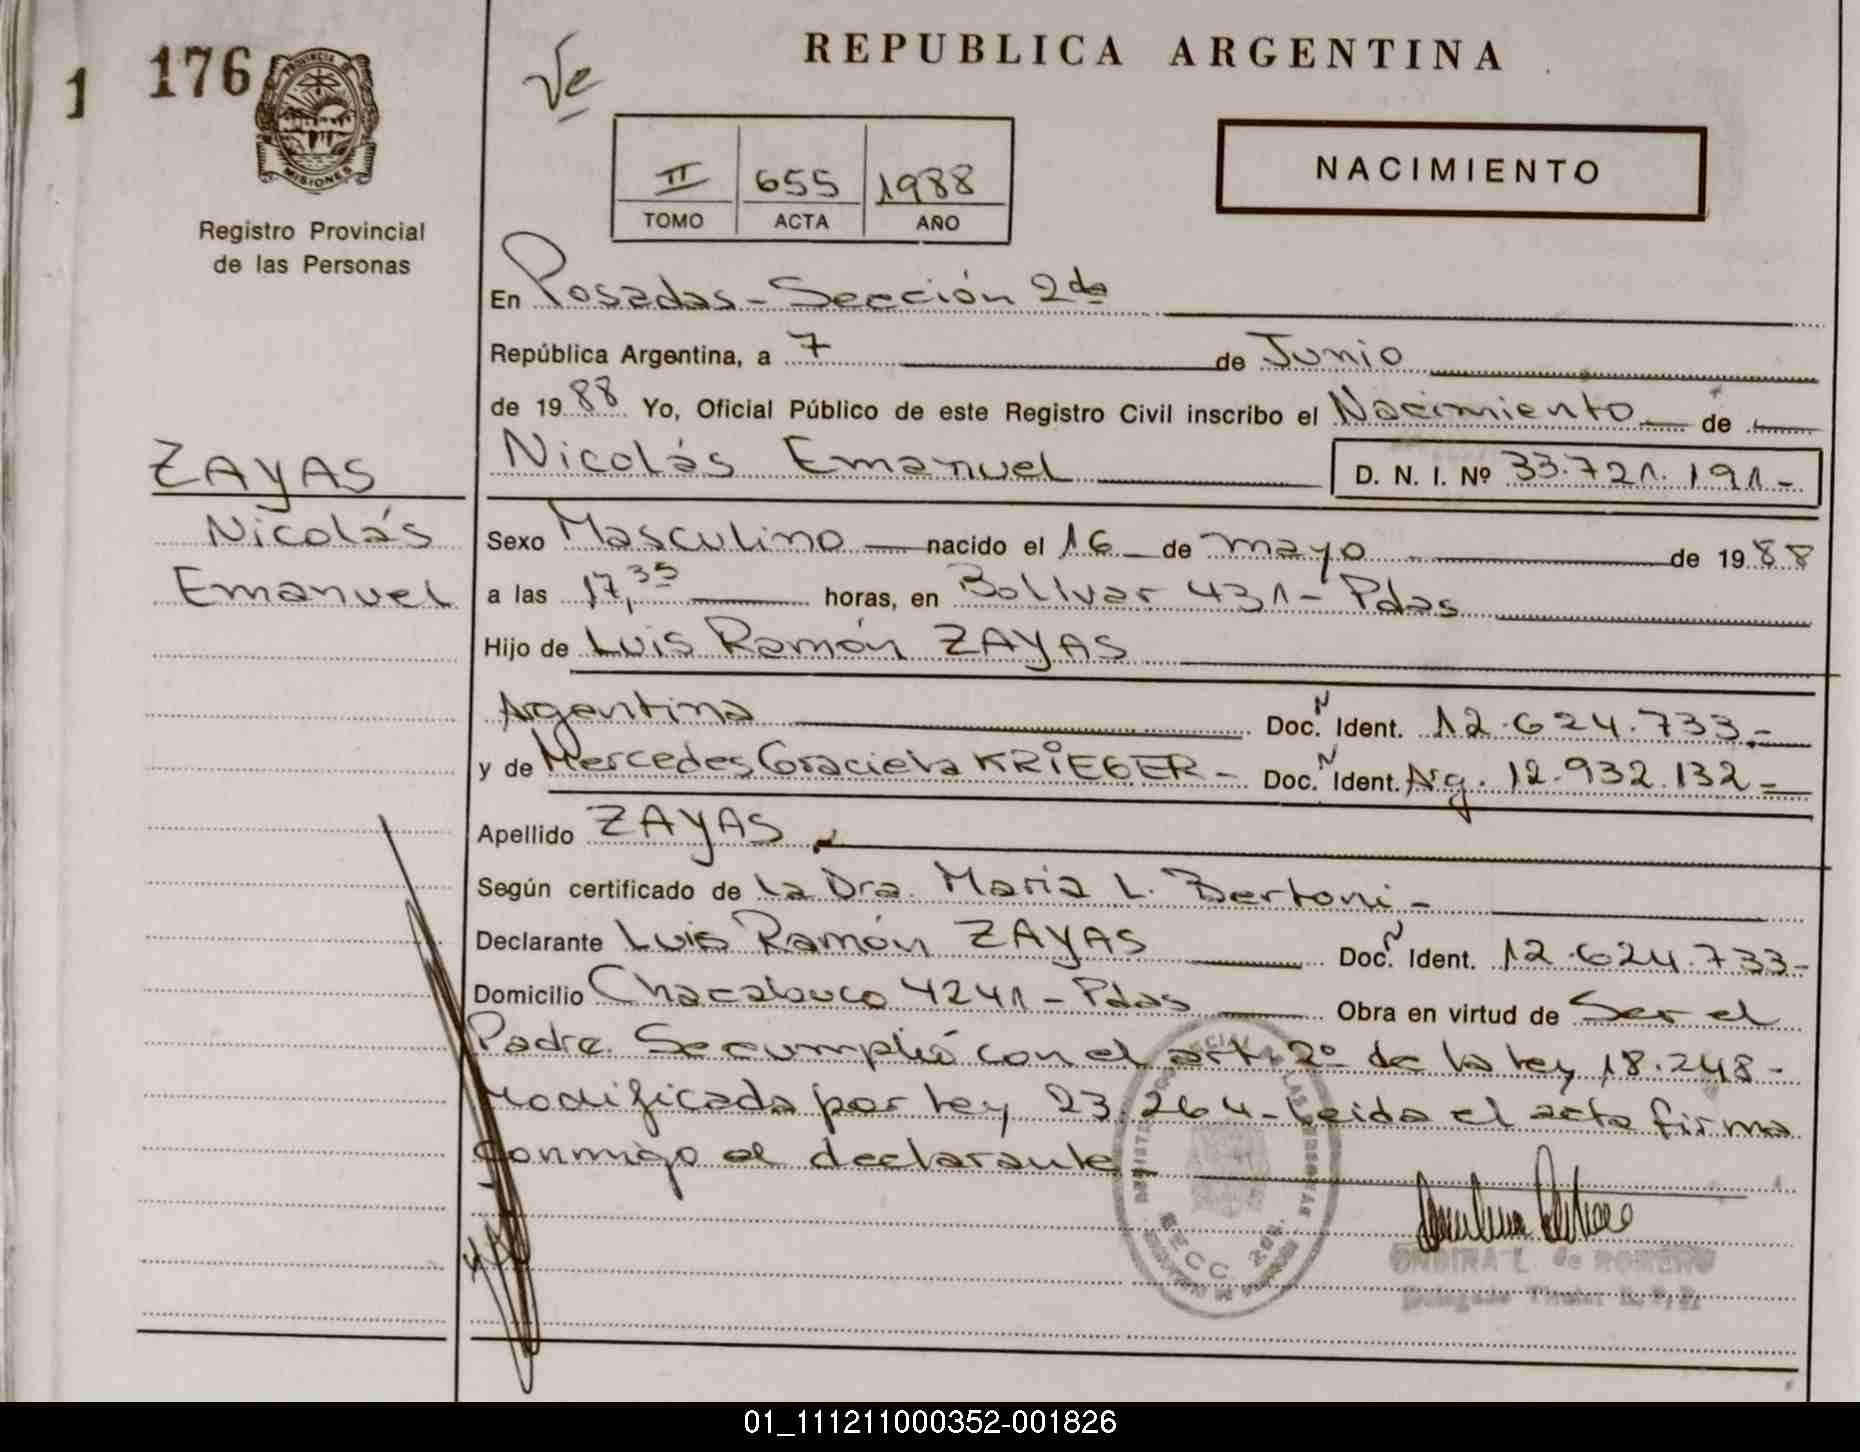 1 176
PROVINCIA DE
MISIONES
Registro Provincial
de las Personas
REPUBLICA ARGENTINA
II 655 1988
TOMO ACTA AÑO
NACIMIENTO
En Posadas - Sección 2da
República Argentina, a 7 de Junio
de 1988 Yo, Oficial Público de este Registro Civil inscribo el Nacimiento de
Nicolás Emanuel D. N. I. Nº 33.721.191-
ZAYAS
Nicolás
Emanuel
Sexo Masculino nacido el 16 de mayo de 1988
a las 17,35 horas, en Bolívar 431 - Pdas
Hijo de Luis Ramón ZAYAS
Argentina Doc. N Ident. 12.624.733.-
y de Mercedes Graciela KRIEGER - Doc. N Ident. Arg. 12.932.132-
Apellido ZAYAS
Según certificado de la Dra. Maria L. Bertoni -
Declarante Luis Ramón ZAYAS Doc. N Ident. 12.624.733-
Domicilio Chacabuco 4241 - Pdas Obra en virtud de Ser el
Padre. Se cumplió con el art. 2º de la ley 18.248-
modificada por ley 23.264- Leida el acta firma
conmigo el declarante-
SECC. 2da
ONDINA L. de ROMERO
Delegado Titular R.P.P.
01_111211000352-001826